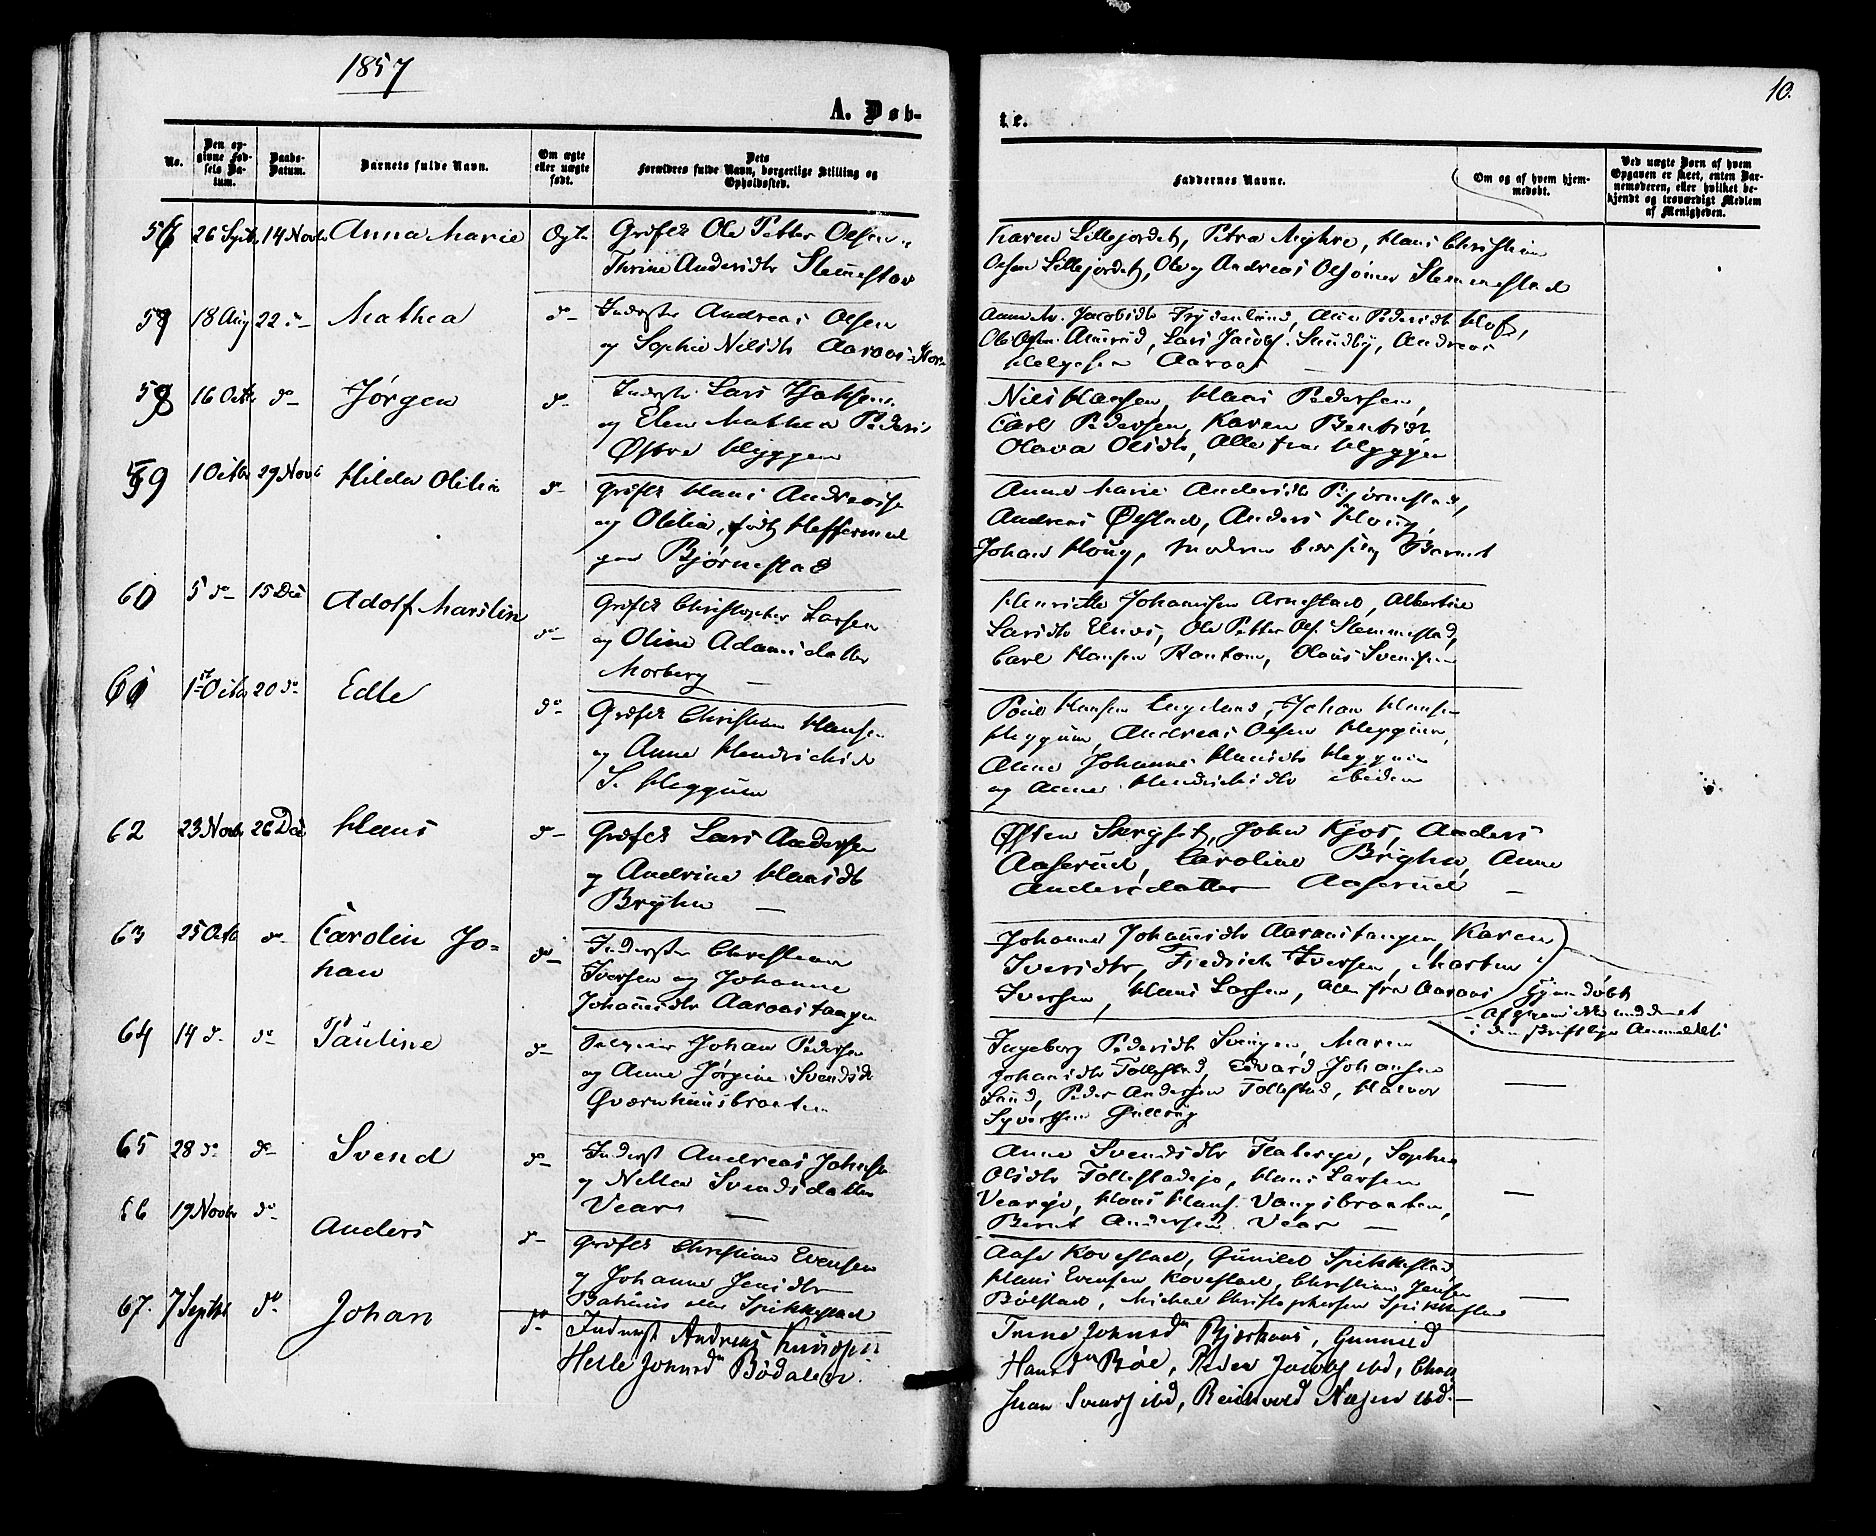 1857
10.
A. Døb-
te.
No.
Den op-
givne Fød-
sels Da-
tum.
Daabs-
Datum.
Barnets fulde Navn.
Om ægte
eller uægte
født.
Dets
Forældres fulde Navn, borgerlige Stilling og
Opholdssted.
Faddernes Navne.
Om og af hvem hjem-
medøbt.
Ved uægte Børn af hvem
Opgaven er skeet, enten Bar-
nemoderen, eller hvilket be-
kjendt og troværdigt Medlem
af Menigheden.
26 Sept 14 Novb Anna Marie Ægte
Ole Petter Olsen
Thrine Andersdtr Slemmestad
Karen Lillejordet, Petra Myhre, Hans Christian
Olsen Lillejordet, Ole og Andreas Olsønner Slemmestad
18 Aug 22 d- Mathea d-
Inderste Andreas Olsen
og Sophie Nilsdtr Aaraas
Anne M. Jacobsdtr Frydenlund, Ane Pedersdtr Hof,
Ole Olsen Almerud, Lars Jacobs. Sundby, Andreas
Helgesen Aaraas
58 16 Octbr do- Jørgen d-
Inderste Lars
og Elen Mathea Peders
Østre Hyggen
Nils Hansen, Hans Pedersen,
Carl Pedersen, Karen Berntsdtr
Olava Olsdtr, Alle fra Hyggen
59 1 Octbr 29 Novb Hilda Olilia d-
Hans Andreas
og Olilia, født
Bjørnestad
Anne Marie Andersdtr Bjørnestad,
Andreas Ølstad, Anders Houg,
Johan Houg, Modren Barnet
60 5 do- 15 Dec Adolf Marelin d-
Christopher Larsen
og Oline Adamsdatter
Morberg
Henriette Johannsen Arnestad, Albertine
Larsdtr Elnes, Ole Petter Ols. Slemmestad,
Carl Hansen Rantom, Olaus Svensen
61 1ste Octbr 20 do- Edle do-
Christian Hansen
og Anne Hendriksd
S. Heggum
Poul Hansen Engelund, Johan Hansen
Heggum, Andreas Olsen Heggum,
Anne Johanne Hansdtr Heggum
og Anne Hendriksdtr ibidem
62 23 Novbr 26 Dec. Hans d-
Lars Andersen
og Andrine Hansdtr
Bryhn
Østen Skryset, John Kjos, Anders
Aaserud, Caroline Bryhn, Anne
Andersdatter Aaserud
63 25 Octb d- Carolin Jo-
han
d-
Inderste Christian
Iversen og Johanne
Johannsdtr Aaraastangen
Johanne Johannsdtr Aaraastangen, Karen
Iversdtr, Fredrick Iversen, Morten
Iversen, Hans Larsen, alle fra Aaraas
Hjemdøbt
i den skriftlige Anmeldelse
64 14 d. do- Pauline d-
Johan Pedersen
og Anne Jørgine Svendsdt
Qværnhuusbraaten
Ingeborg Pedersdtr Svingen, Maren
Johansdtr Tollestad, Edvard Johansen
Lund, Peder Andersen Tollestad, Halvor
Syvertsen Gullaug
65 28 do- do- Svend d-
Inderst Andreas Johnsen
og Nella Svendsdatter
Vear
Anne Svendsdtr, Sophie
Olsdtr, Hans Larsen
Hans Hans. Vangsbraaten,
Bernt Andersen Vear
66 19 Novbr do- Anders d-
Christian Evensen
og Johanne Jensdtr
Spikkestad
Aase Kovestad, Gunild Spikkestad
Hans Evensen Kovestad, Christian Jensen
Bølstad, Michel Christophersen Spikkestad
67. 7 Septbr do Johan do-
Inderst Andreas
Helle Johnsd Bødalen.
Trine Johnsd Bjerkaas, Gunnild
Hansd Bøe, Peder Jacobs ibd,
Svends ibd, Reinhold Næsse ibd.